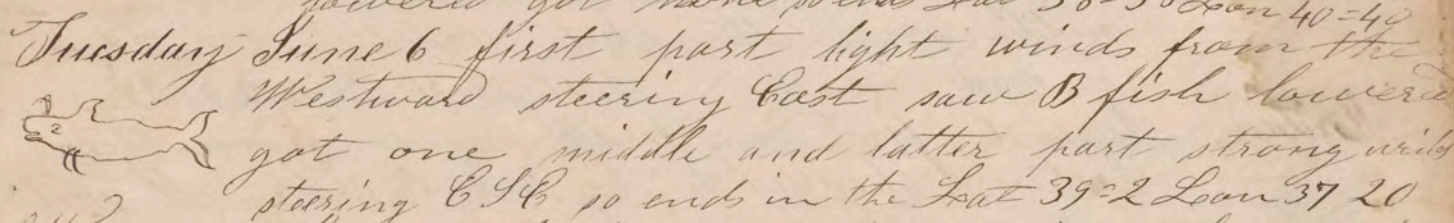 lowered got none so ends Lat 38=58 Lon 40=40
Tuesday June 6 first part light winds from the
Westward steering East saw B fish lowered
got one middle and latter part strong winds
steering ESE so ends in the Lat 39=2 Lon 37 20